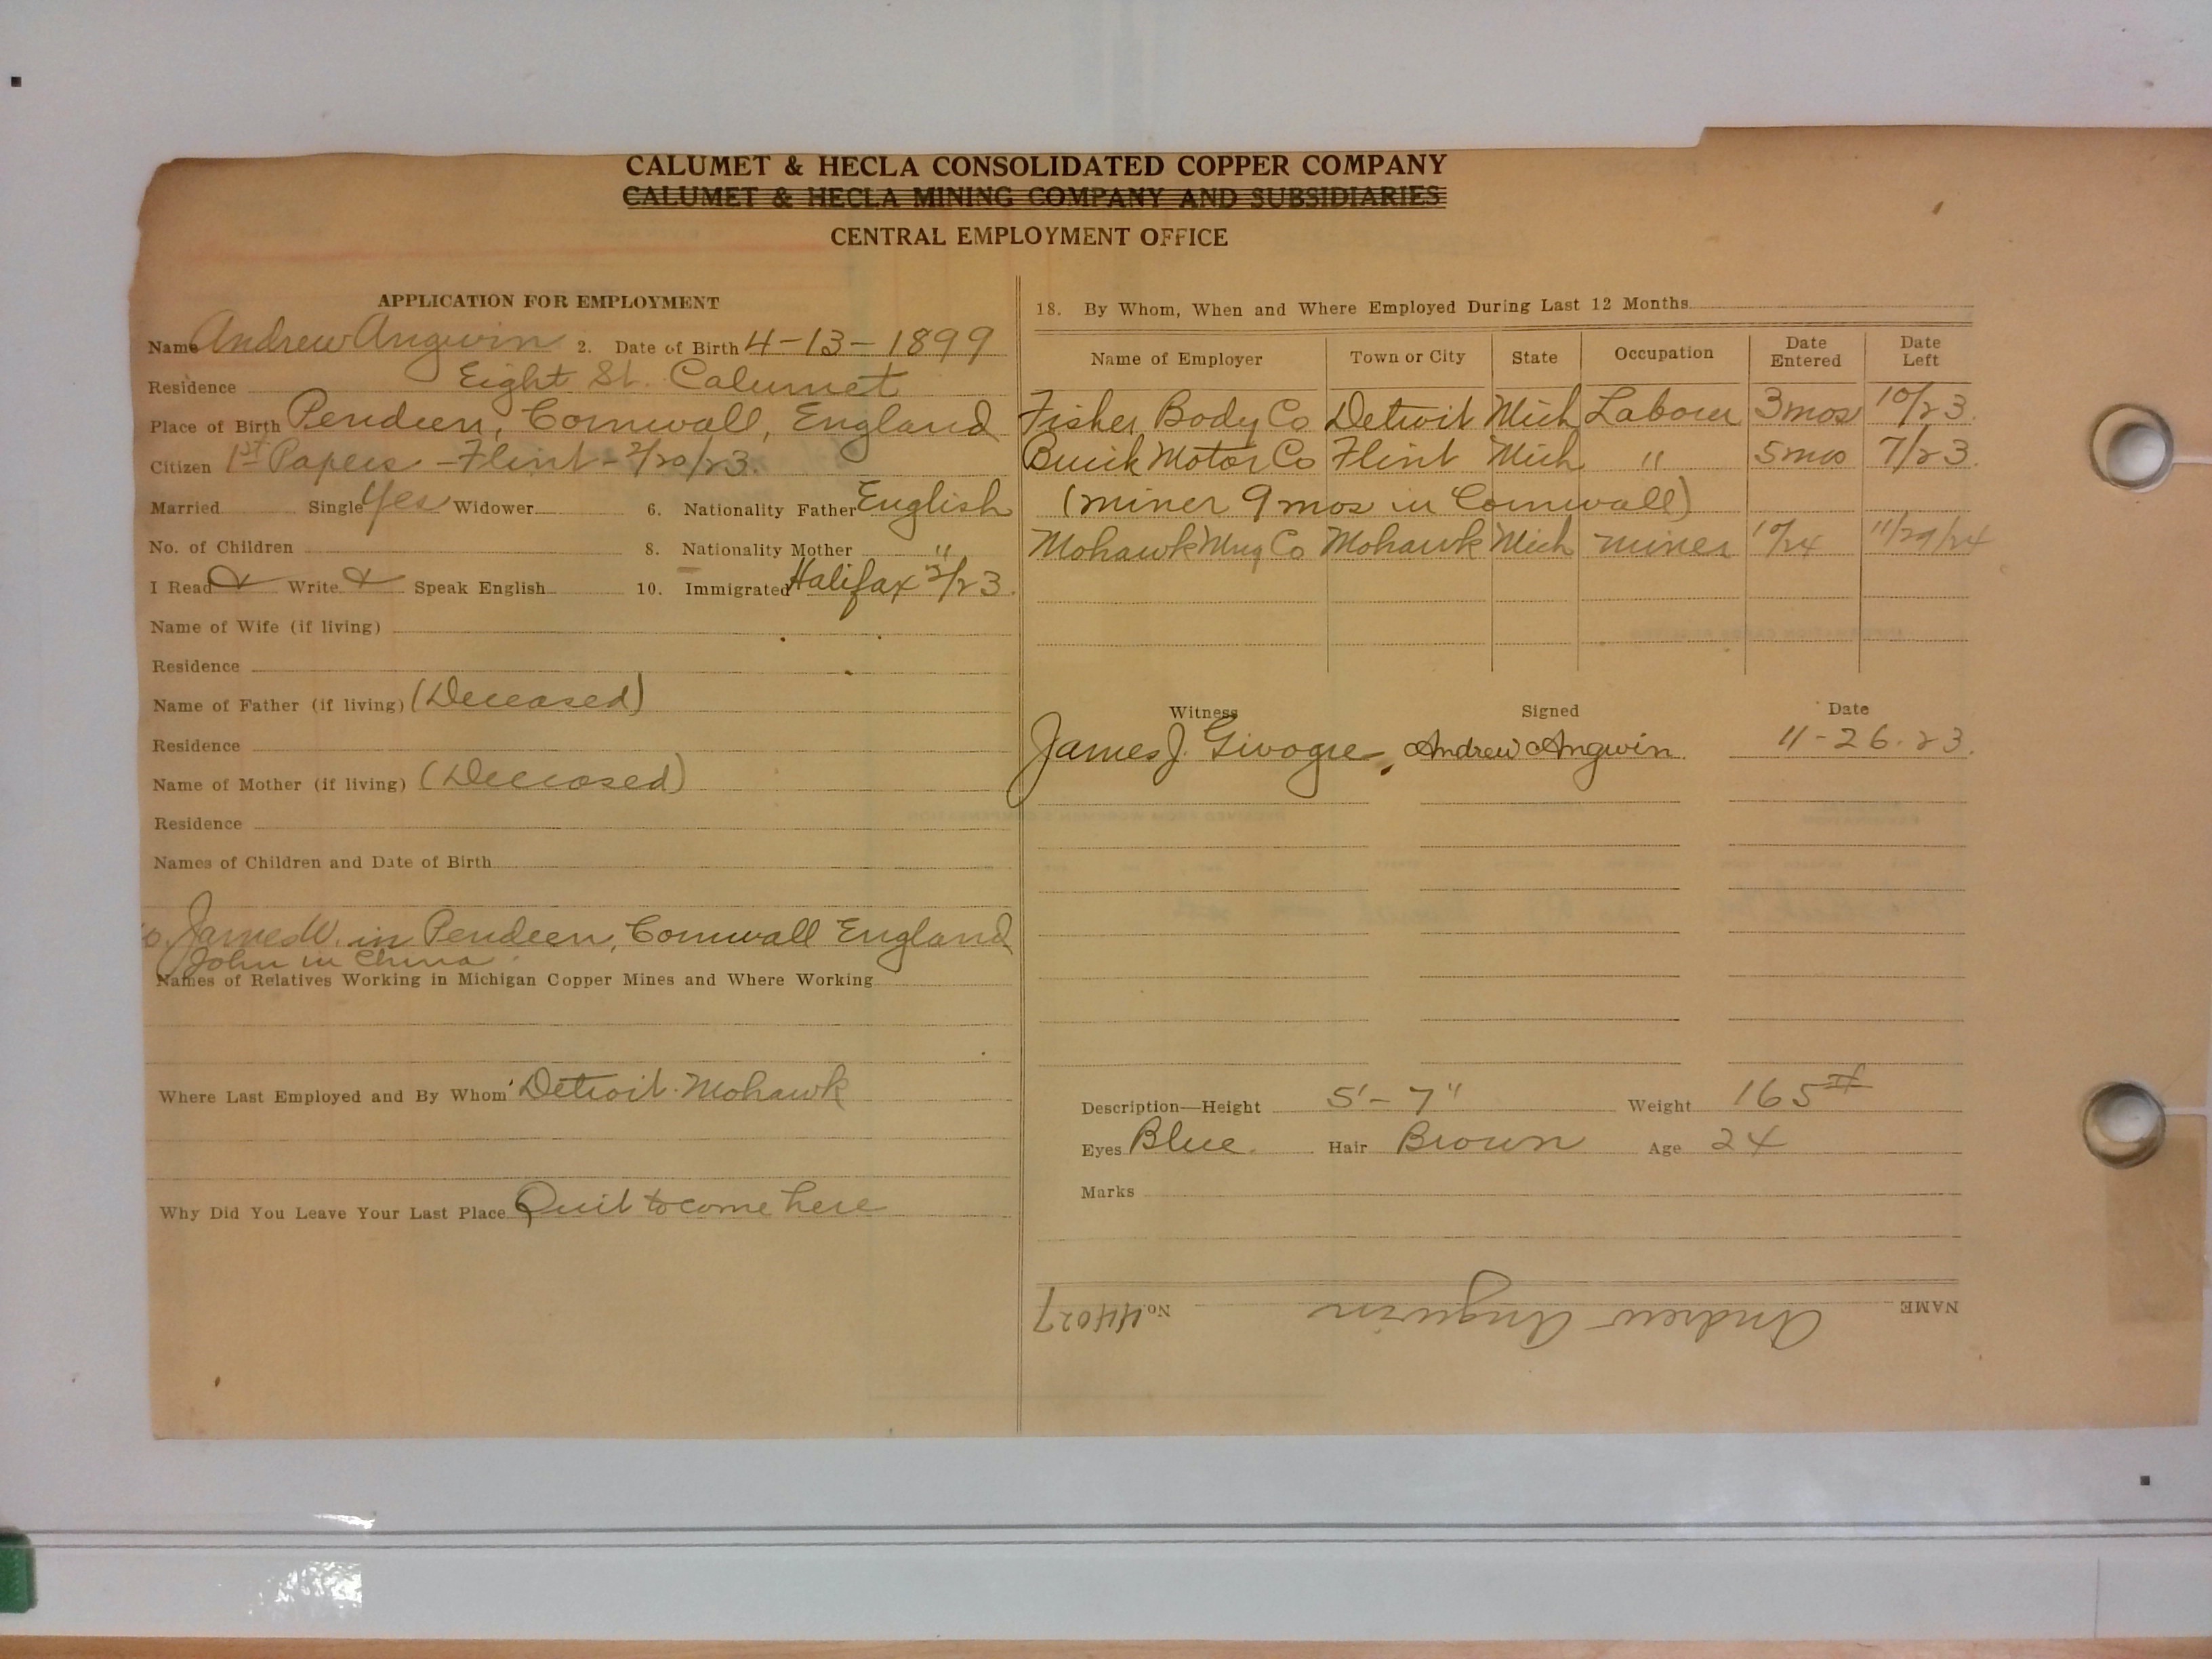 CALUMET & HECLA CONSOLIDATED COPPER COMPANY
CALUMET & HECLA MINING COMPANY AND SUBSIDIARIES
CENTRAL EMPLOYMENT OFFICE
APPLICATION FOR EMPLOYMENT
Name Andrew Angwin 2. Date of Birth 4-13-1899
Residence Eight St. Calumet
Place of Birth Pendeen, Cornwall, England
Citizen 1st Papers - Flint - 2/20/23.
Married Single Yes Widower 6. Nationality Father English
No. of Children 8. Nationality Mother "
I Read & Write & Speak English 10. Immigrated Halifax 2/23.
Name of Wife (if living)
Residence
Name of Father (if living) (Deceased)
Residence
Name of Mother (if living) (Deceased)
Residence
Names of Children and Date of Birth
James W. in Pendeen, Cornwall England
John in China
Names of Relatives Working in Michigan Copper Mines and Where Working
Where Last Employed and By Whom Detroit. Mohawk
Why Did You Leave Your Last Place Quit to come here
18. By Whom, When and Where Employed During Last 12 Months
Name of Employer Town or City State Occupation Date Entered Date Left
Fisher Body Co Detroit Mich Labour 3 mos 10/23.
Buick Motor Co Flint Mich " 5 mos 7/23.
(miner 9 mos in Cornwall)
Mohawk Mng Co Mohawk Mich miner 10/24 11/29/24
Witness Signed Date
James J. Andrew Angwin. 11-26-23.
Description—Height 5'-7" Weight 165#
Eyes Blue. Hair Brown Age 24
Marks
NAME Andrew Angwin No. 44027